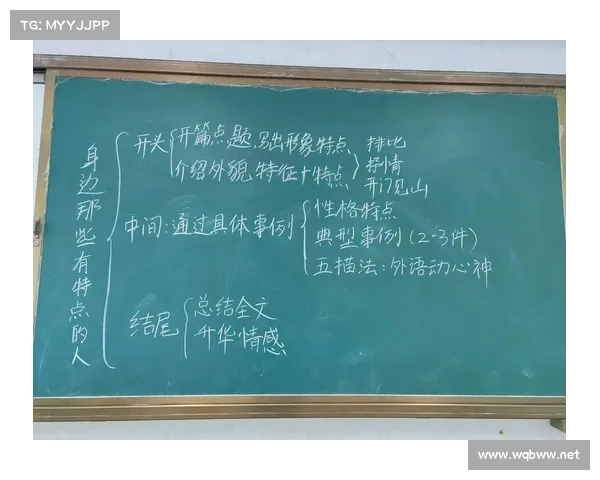 TG: MYYJJPP
身边那些有特点的人
开头
开篇点题,写出形象特点
介绍外貌,特征+特点
排比
抒情
开门见山
中间:通过具体事例
性格特点
典型事例(2-3件)
五描法:外语动心神
结尾
总结全文
升华情感
www.wqbww.net